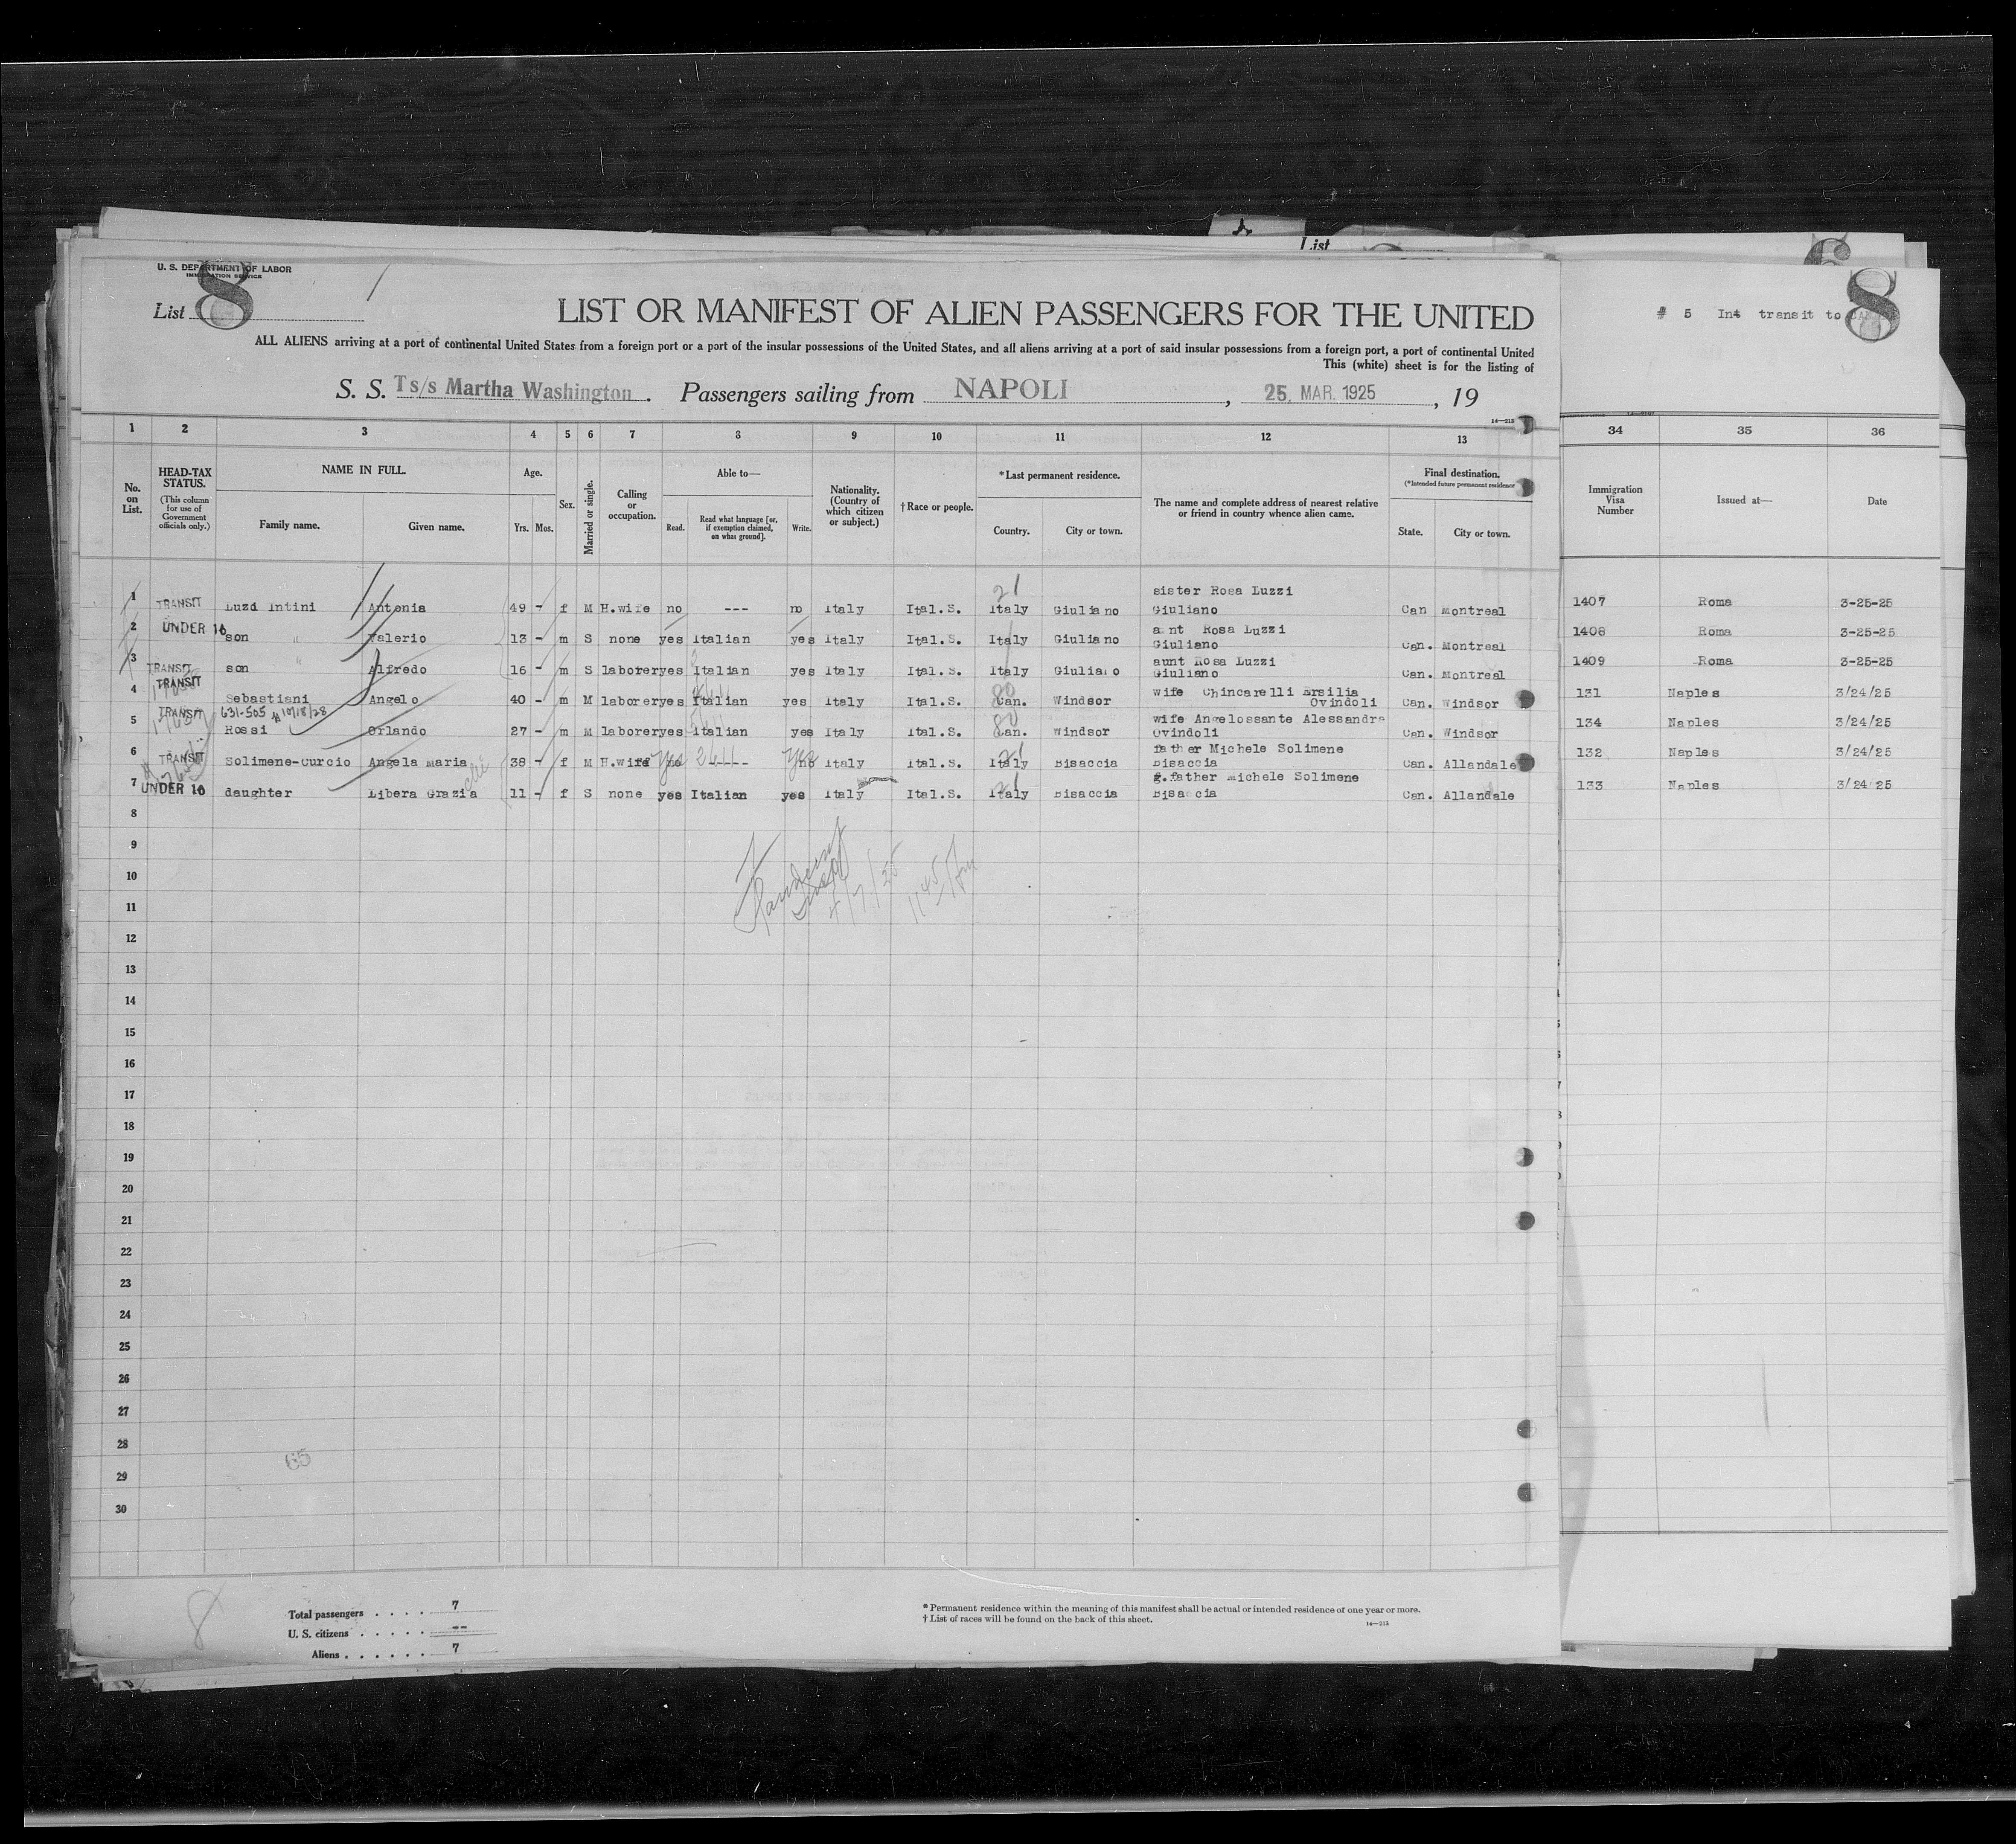 List
U. S. DEPARTMENT OF LABOR
IMMIGRATION SERVICE
List 8
LIST OR MANIFEST OF ALIEN PASSENGERS FOR THE UNITED
ALL ALIENS arriving at a port of continental United States from a foreign port or a port of the insular possessions of the United States, and all aliens arriving at a port of said insular possessions from a foreign port, a port of continental United
This (white) sheet is for the listing of
S. S. Ts/s Martha Washington. Passengers sailing from NAPOLI, 25. MAR. 1925, 19
14—213
# 5 In4 transit to
8
1 2 3 4 5 6 7 8 9 10 11 12 13 34 35 36
No. on List.
HEAD-TAX STATUS.
(This column for use of Government officials only.)
NAME IN FULL.
Family name. Given name.
Age.
Yrs. Mos.
Sex.
Married or single.
Calling or occupation.
Able to—
Read. Read what language [or, if exemption claimed, on what ground]. Write.
Nationality. (Country of which citizen or subject.)
† Race or people.
*Last permanent residence.
Country. City or town.
The name and complete address of nearest relative or friend in country whence alien came.
Final destination.
(*Intended future permanent residence
State. City or town.
Immigration Visa Number
Issued at—
Date
21
sister Rosa Luzzi
1 TRANSIT Luzi Intini Antonia 49 - f M H.wife no --- no Italy Ital.S. Italy Giuliano Giuliano Can Montreal 1407 Roma 3-25-25
a nt Rosa Luzzi
2 UNDER 16 son " Valerio 13 - m S none yes Italian yes Italy Ital.S. Italy Giuliano Giuliano Can. Montreal 1408 Roma 3-25-25
aunt Rosa Luzzi
3 TRANSIT son " Alfredo 16 - m S laborer yes Italian yes Italy Ital.S. Italy Giuliano Giuliano Can. Montreal 1409 Roma 3-25-25
wife Chincarelli Ersilia
4 TRANSIT Sebastiani Angelo 40 - m M laborer yes Italian yes Italy Ital.S. Can. Windsor Ovindoli Can. Windsor 131 Naples 3/24/25
631-505 10/18/28
wife Angelossante Alessandra
5 TRANSIT Rossi Orlando 27 - m M laborer yes Italian yes Italy Ital.S. Can. Windsor Ovindoli Can. Windsor 134 Naples 3/24/25
father Michele Solimene
6 TRANSIT Solimene-Curcio Angela Maria 38 - f M H.wife no yes ---- no yes Italy Ital.S. Italy Bisaccia Bisaccia Can. Allandale 132 Naples 3/24/25
g.father Michele Solimene
7 UNDER 16 daughter Libera Grazia 11 - f S none yes Italian yes Italy Ital.S. Italy Bisaccia Bisaccia Can. Allandale 133 Naples 3/24/25
8
9
4/7/25
1145
10
11
12
13
14
15
16
17
18
19
20
21
22
23
24
25
26
27
28
65
29
30
8
Total passengers . . . . 7
U. S. citizens . . . . . --
Aliens . . . . . . 7
* Permanent residence within the meaning of this manifest shall be actual or intended residence of one year or more.
† List of races will be found on the back of this sheet.
14—213